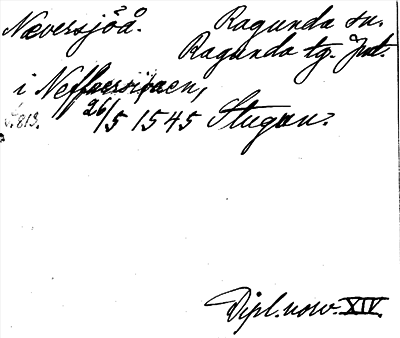 Næversjöå. Ragunda sn.
Ragunda tg. Jmt.
i Neffuersioaen,
s. 813. 26/5 1545 Stugun.
Dipl. norv. XIV.